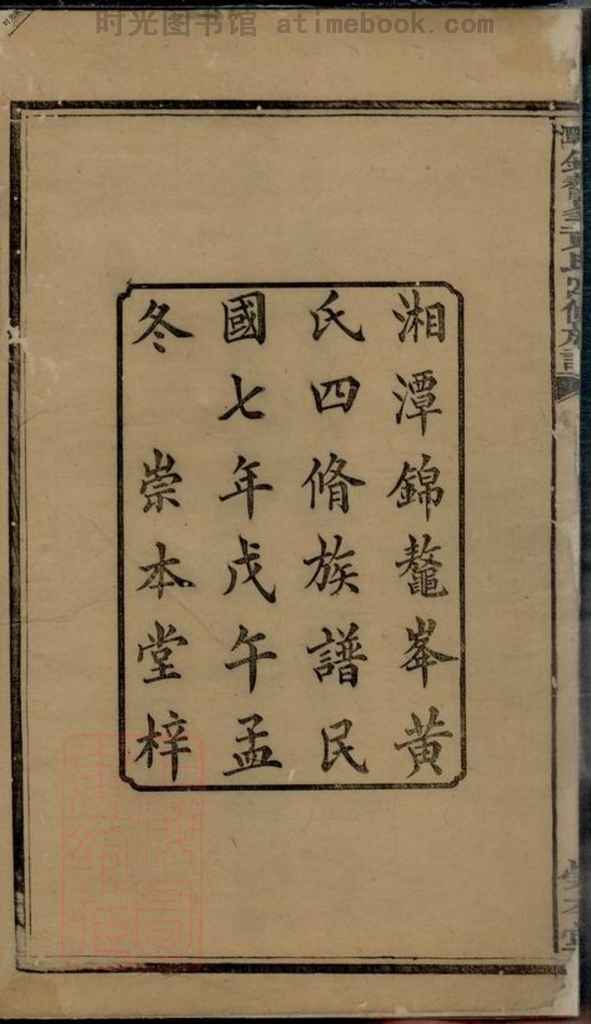 时光图书馆 atimebook.com
湘潭錦鼇峯黃
氏四脩族譜民
國七年戊午孟
冬 崇本堂梓